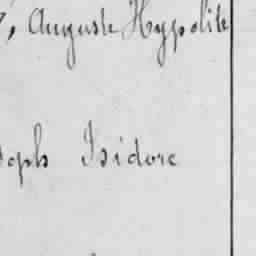 , Auguste Hypolite
seph Isidore